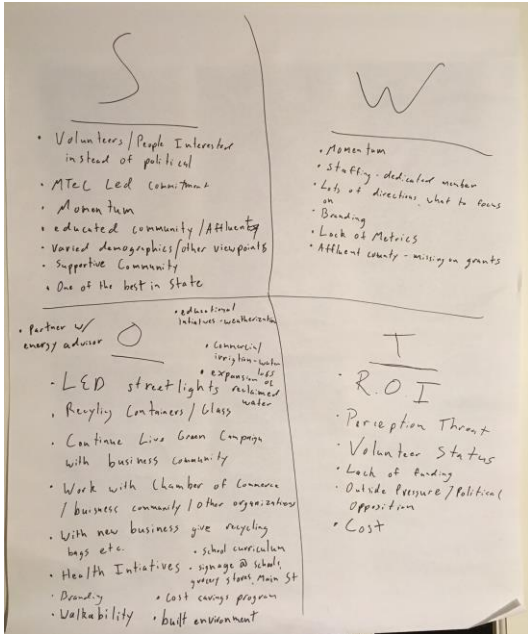 S
• Volunteers/People Interested
instead of political
• MTEC Led Commitment
• Momentum
• educated community/Affluency
• Varied demographics/other viewpoints
• Supportive Community
• One of the best in State
W
• Momentum
• Staffing - dedicated member
• Lots of directions, what to focus
on
• Branding
• Lack of Metrics
• Affluent county - missing on grants
O
• Partner w/
energy advisor
• educational
initiatives - weatherization
• Commercial
irrigation - water
loss
• expansion of
reclaimed
water
• LED streetlights
• Recyling Containers/Glass
• Continue Live Green Campaign
with business community
• Work with Chamber of Commerce
/ buisness community / Other organizations
• With new business give recycling
bags etc.
• School curriculum
• Health Intiatives
• signage @ schools,
grocery stores, Main St
• Branding
• Cost savings program
• Walkability
• built environment
T
• R.O.I
• Perception Threat
• Volunteer Status
• Lack of funding
• Outside Pressure/Political
Opposition
• Cost